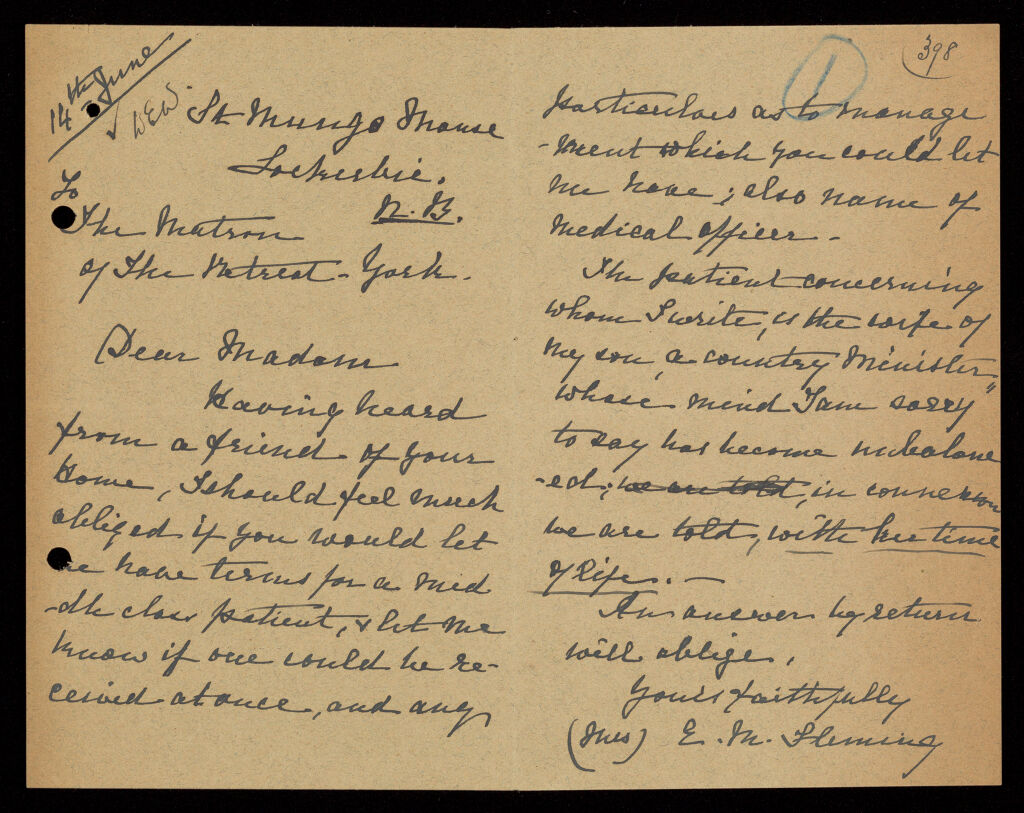 14th June
WEW.
St Mungo Manse
Lockerbie.
N. B.
To
The Matron
of The Retreat - York.
Dear Madam
Having heard
from a friend of your
Home, I should feel much
obliged if you would let
me have terms for a mid
-dle class patient, & let me
know if one could be re-
ceived at once, and any
398
1
particulars as to manage
-ment which you could let
me have; also name of
medical officer -
The patient concerning
whom I write, is the wife of
my son, a country Minister,
whose mind I am sorry
to say has become unbalanc
-ed, we are told, in connexion
we are told, with her time
of life. -
An answer by return
will oblige.
Yours faithfully
(Mrs) E. M. Fleming